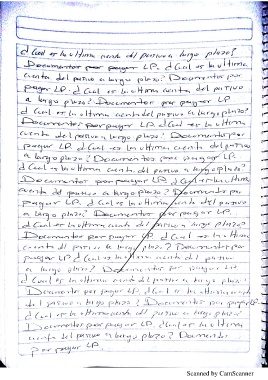 ¿Cual es la última cuenta del pasivo a largo plazo?
Documentos por pagar LP. ¿Cual es la última
cuenta del pasivo a largo plazo? Documentos por
pagar LP. ¿Cual es la última cuenta del pasivo
a largo plazo? Documentos por pagar LP.
¿Cual es la última cuenta del pasivo a largo plazo?
Documentos por pagar LP. ¿Cual es la última
cuenta del pasivo a largo plazo? Documentos por
pagar LP. ¿Cual es la última cuenta del pasivo
a largo plazo? Documentos por pagar LP.
¿Cual es la última cuenta del pasivo a largo plazo?
Documentos por pagar LP. ¿Cual es la última
cuenta de pasivo a largo plazo? Documentos por
pagar LP. ¿Cual es la última cuenta del pasivo
a largo plazo? Documentos por pagar LP.
¿Cual es la última cuenta del pasivo a largo plazo?
Documentos por pagar LP. ¿Cual es la última
cuenta del pasivo a largo plazo? Documentos por
pagar LP ¿Cual es la última cuenta del pasivo
a largo plazo? Documentos por pagar LP
¿Cual es la última cuenta del pasivo a largo plazo
Documentos por pagar LP. ¿Cual es la última cuenta
del pasivo a largo plazo? Documentos por pagar LP
¿Cual es la última cuenta del pasivo a largo plazo?
Documentos por pagar LP. ¿Cual es la última
cuenta del pasivo a largo plazo? Documentos
por pagar LP.
Scanned by CamScanner